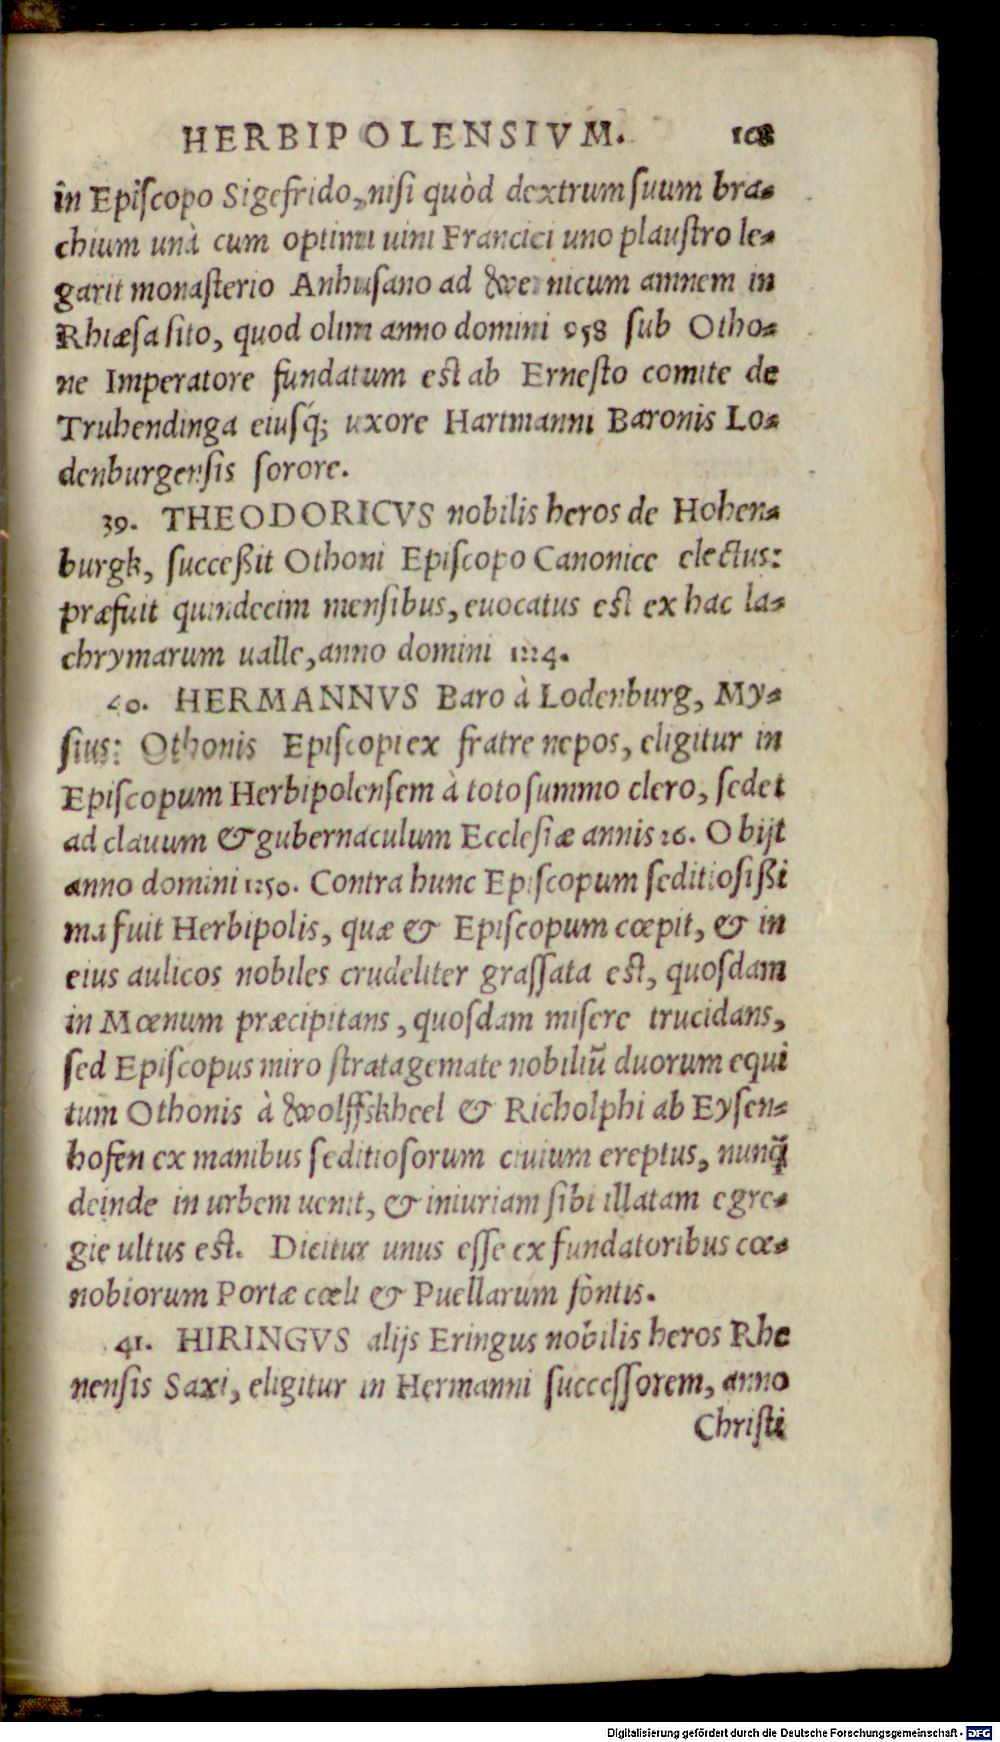 HERBIPOLENSIVM. 108
in Episcopo Sigefrido, nisi quòd dextrum suum bra-
chium unà cum optimi uini Francici uno plaustro le-
garit monasterio Anhusano ad Wernicum amnem in
Rhiæsa sito, quod olim anno domini 958 sub Otho-
ne Imperatore fundatum est ab Ernesto comite de
Truhendinga eiusq́; uxore Hartmanni Baronis Lo-
denburgensis sorore.
39. THEODORICVS nobilis heros de Hohen-
burgk, succeßit Othoni Episcopo Canonice electus:
præfuit quindecim mensibus, euocatus est ex hac la-
chrymarum ualle, anno domini 1224.
40. HERMANNVS Baro à Lodenburg, My-
sius: Othonis Episcopi ex fratre nepos, eligitur in
Episcopum Herbipolensem à toto summo clero, sedet
ad clauum & gubernaculum Ecclesiæ annis 26. Obijt
anno domini 1250. Contra hunc Episcopum seditiosißi
ma fuit Herbipolis, quæ & Episcopum cœpit, & in
eius aulicos nobiles crudeliter grassata est, quosdam
in Mœnum præcipitans, quosdam misere trucidans,
sed Episcopus miro stratagemate nobiliũ duorum equi
tum Othonis à Wolffskheel & Richolphi ab Eysen-
hofen ex manibus seditiosorum ciuium ereptus, nunq̃
deinde in urbem uenit, & iniuriam sibi illatam egre-
gie ultus est. Dicitur unus esse ex fundatoribus cœ-
nobiorum Portæ cœli & Puellarum fontis.
41. HIRINGVS alijs Eringus nobilis heros Rhe
nensis Saxi, eligitur in Hermanni successorem, anno
Christi
Digitalisierung gefördert durch die Deutsche Forschungsgemeinschaft - DFG